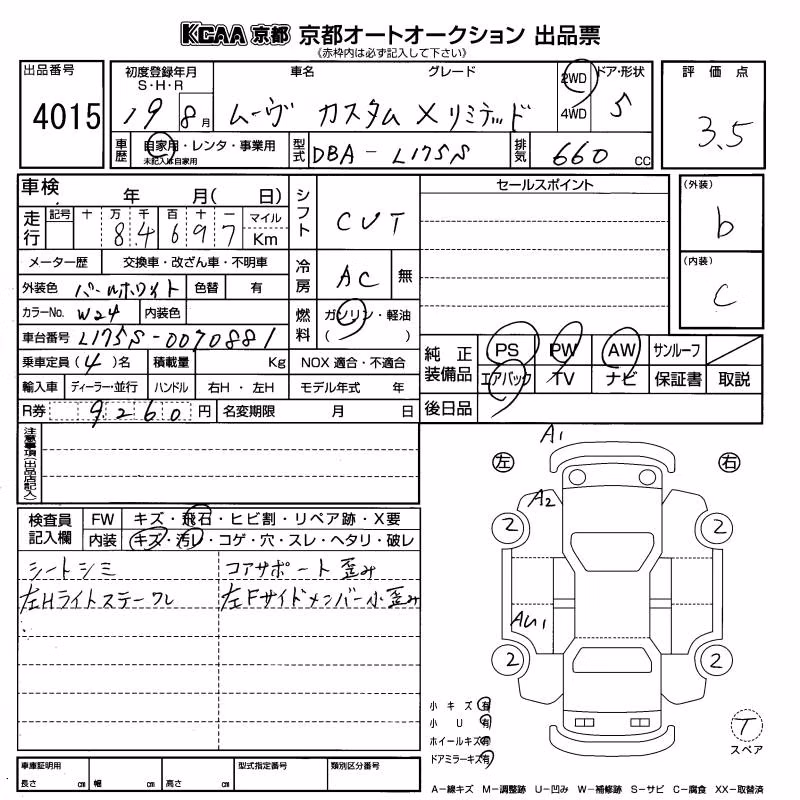 KCAA 京都 京都オートオークション 出品票
《赤枠内は必ず記入して下さい》
出品番号 4015
初度登録年月 S・H・R 19 8月
車名 グレード
ムーヴ カスタム X リミテッド
2WD 4WD
ドア・形状 5
評価点 3.5
車歴 自家用・レンタ・事業用
未記入は自家用
型式 DBA-L175S
排気 660 CC
車検 年 月( 日)
走行 記号 十 万 千 百 十 一 マイル
8 4 6 9 7 Km
メーター歴 交換車・改ざん車・不明車
外装色 パールホワイト 色替 有
カラーNo. W24 内装色
車台番号 L175S-0070881
乗車定員(4)名 積載量 Kg
輸入車 ディーラー・並行 ハンドル 右H・左H
R券 9260円 名変期限 月 日
シフト CVT
冷房 AC 無
燃料 ガソリン・軽油
( )
NOX 適合・不適合
モデル年式 年
セールスポイント
(外装) b
(内装) C
純正装備品 PS PW AW サンルーフ
エアバック TV ナビ 保証書 取説
後日品
注意事項(出品店記入)
検査員記入欄 FW キズ・飛石・ヒビ割・リペア跡・X要
内装 キズ・汚レ・コゲ・穴・スレ・ヘタリ・破レ
シートシミ コアサポート歪み
左Hライトステーワレ 左Fサイドメンバー小歪み
左 右
A1
A2
2 2
AU1
2 2
小キズ 有
小U 有
ホイールキズ 有
ドアミラーキズ 有
T
スペア
車庫証明用 型式指定番号 類別区分番号
長さ cm 幅 cm 高さ cm
A-線キズ M-調整跡 U-凹み W-補修跡 S-サビ C-腐食 XX-取替済